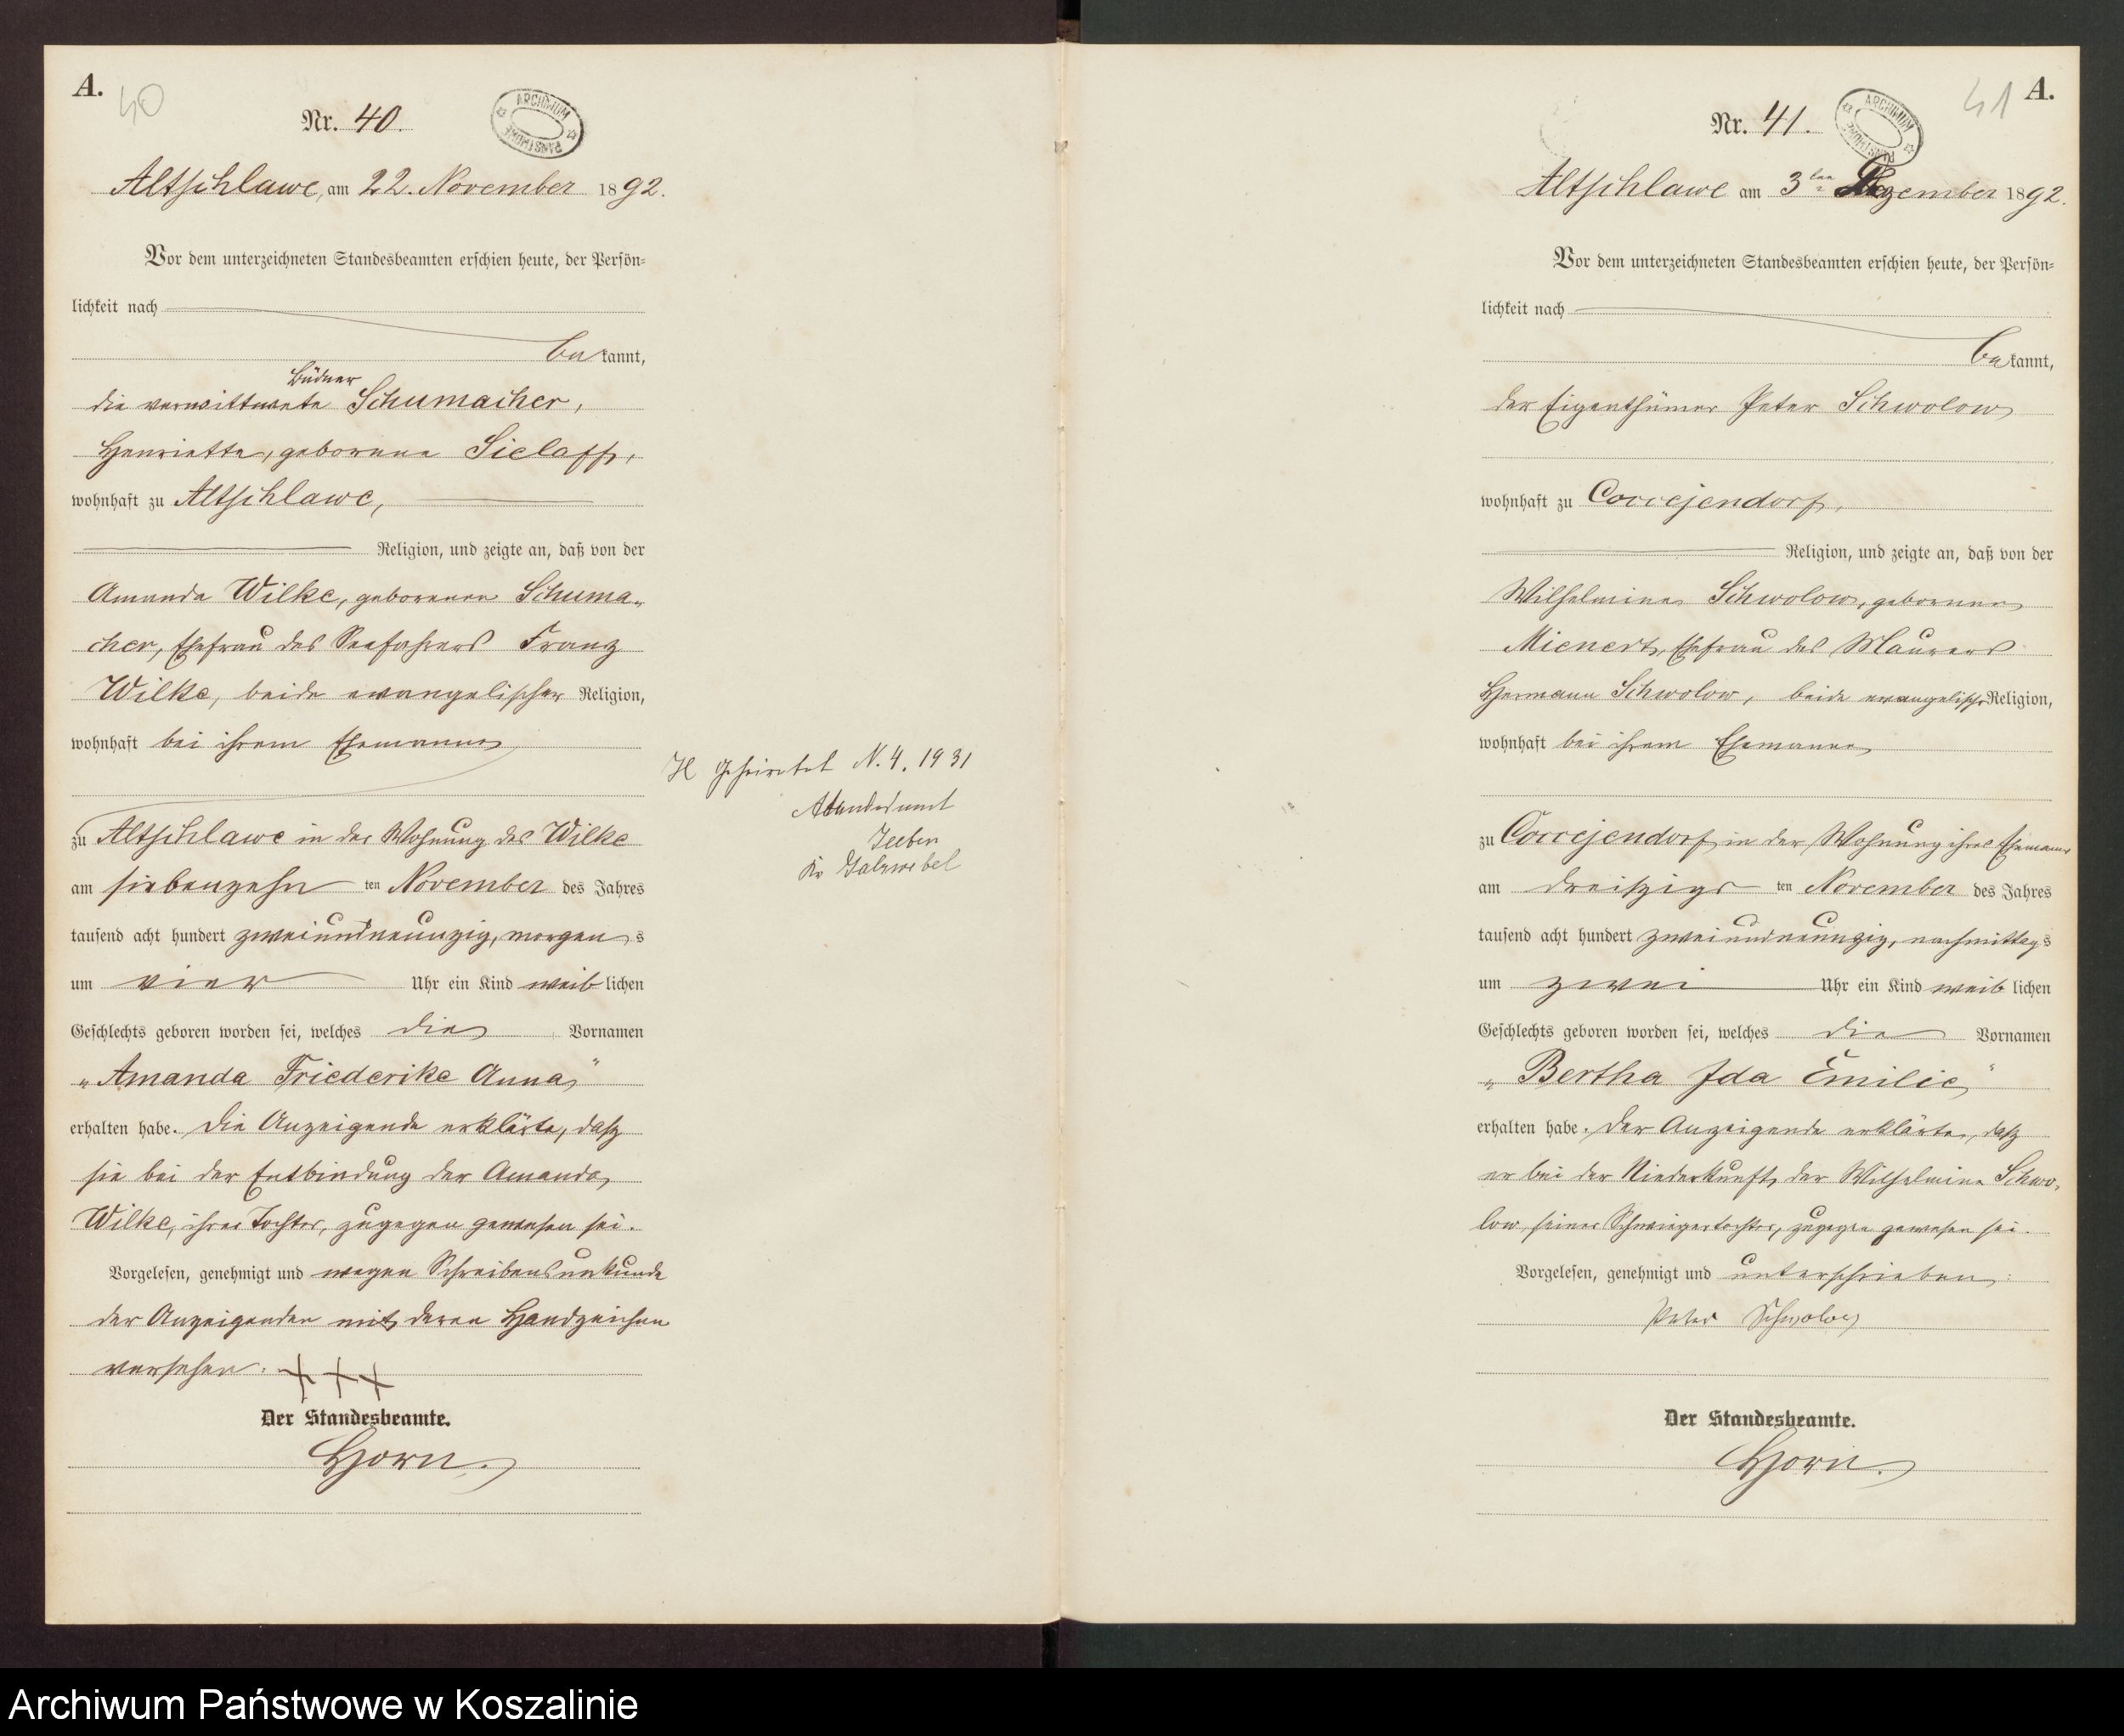 A.
40
Nr. 40.
ARCHIWUM PAŃSTWOWE
Altschlawe, am 22. November 1892.
Vor dem unterzeichneten Standesbeamten erschien heute, der Persön-
lichkeit nach
bekannt,
Büdner
die verwittwete Schumacher,
Henriette, geborene Sielaff,
wohnhaft zu Altschlawe,
Religion, und zeigte an, daß von der
Amanda Wilke, geborenen Schuma-
cher, Ehefrau des Seefahrers Franz
Wilke, beide evangelischer Religion,
wohnhaft bei ihrem Ehemanne
zu Altschlawe in der Wohnung des Wilke
am siebenzehn ten November des Jahres
tausend acht hundert zweiundneunzig, morgens
um vier Uhr ein Kind weiblichen
Geschlechts geboren worden sei, welches die Vornamen
„Amanda Friederike Anna"
erhalten habe. Die Anzeigende erklärte, daß
sie bei der Entbindung der Amanda
Wilke, ihrer Tochter, zugegen gewesen sei.
Vorgelesen, genehmigt und wegen Schreibensunkunde
der Anzeigenden mit deren Handzeichen
versehen. +++
Der Standesbeamte.
Horn.
Geheiratet N. 4. 1931
Standesamt
Jeeben
Kr Salzwedel
A.
41
Nr. 41.
ARCHIWUM PAŃSTWOWE
Altschlawe am 3ten Dezember 1892.
Vor dem unterzeichneten Standesbeamten erschien heute, der Persön-
lichkeit nach
bekannt,
der Eigenthümer Peter Schwolow
wohnhaft zu Correjendorf,
Religion, und zeigte an, daß von der
Wilhelmine Schwolow, geborenen
Mienert, Ehefrau des Maurers
Hermann Schwolow, beide evangelischer Religion,
wohnhaft bei ihrem Ehemanne
zu Correjendorf in der Wohnung ihres Ehemanns
am dreißigs ten November des Jahres
tausend acht hundert zweiundneunzig, nachmittags
um zwei Uhr ein Kind weiblichen
Geschlechts geboren worden sei, welches die Vornamen
„Bertha Ida Emilie"
erhalten habe. Der Anzeigende erklärte, daß
er bei der Niederkunft der Wilhelmine Schwo-
low, seiner Schwiegertochter, zugegen gewesen sei.
Vorgelesen, genehmigt und unterschrieben:
Peter Schwolow
Der Standesbeamte.
Horn.
Archiwum Państwowe w Koszalinie